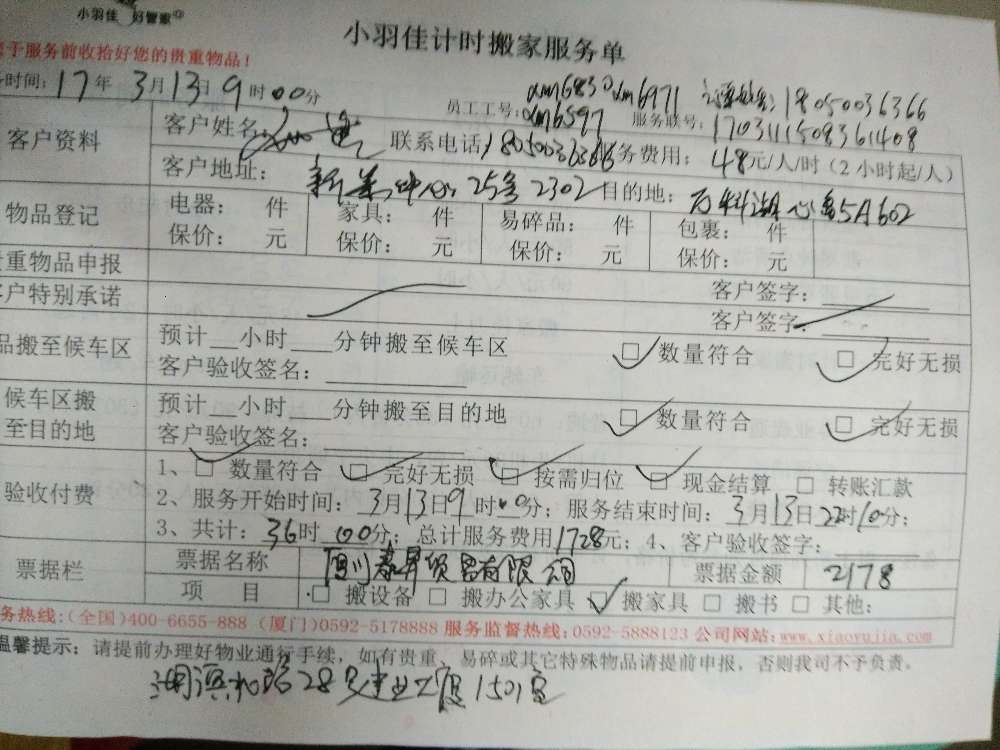 小羽佳 好管家
小羽佳计时搬家服务单
于服务前收拾好您的贵重物品！
时间：17年3月13日9时00分
员工工号：xm6830 xm6971
xm6597
18050036366
服务联号：1703111508361408
客户资料
客户姓名：
联系电话
务费用：48元/人/时（2小时起/人）
客户地址：
2302
目的地：
5A602
物品登记
电器： 件 家具： 件 易碎品： 件 包裹： 件
保价： 元 保价： 元 保价： 元 保价： 元
重物品申报
客户签字：
户特别承诺
客户签字：
品搬至候车区
预计__小时____分钟搬至候车区 □ 数量符合 □ 完好无损
客户验收签名：
候车区搬
至目的地
预计__小时____分钟搬至目的地 □ 数量符合 □ 完好无损
客户验收签名：
验收付费
1、□ 数量符合 □ 完好无损 □ 按需归位 □ 现金结算 □ 转账汇款
2、服务开始时间：3月13日9时00分；服务结束时间：3月13日22时10分；
3、共计：36时00分；总计服务费用1728元；4、客户验收签字：
票据栏
票据名称
贸易有限公司
票据金额 2178
项 目 □ 搬设备 □ 搬办公家具 □ 搬家具 □ 搬书 □ 其他：
务热线：（全国）400-6655-888 （厦门）0592-5178888 服务监督热线：0592-5888123 公司网站：www.xiaoyujia.com
温馨提示：请提前办理好物业通行手续，如有贵重、易碎或其它特殊物品请提前申报，否则我司不予负责。
1501室